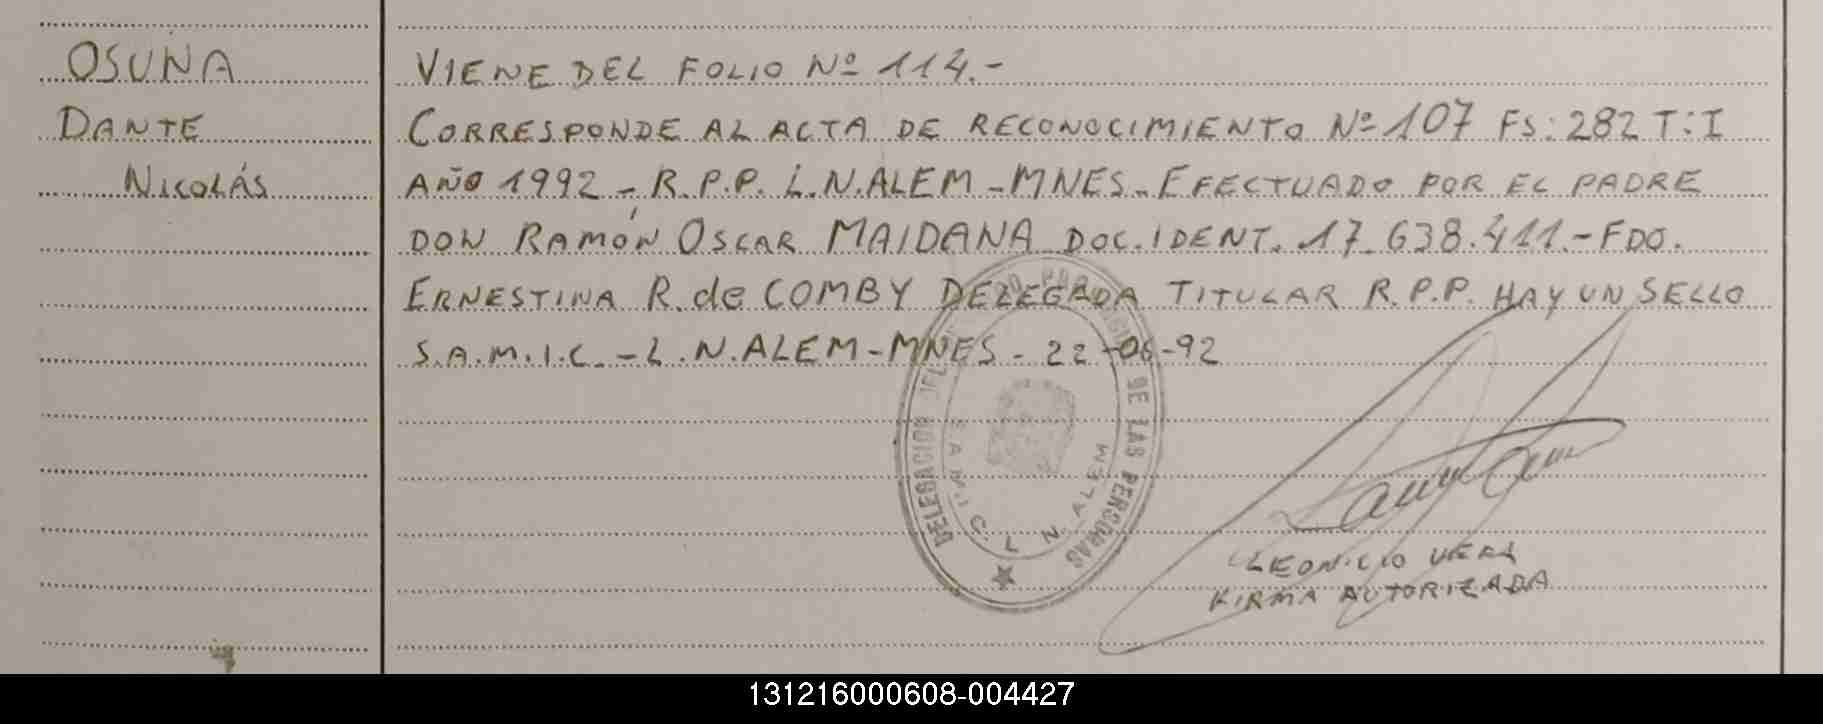 OSUNA
DANTE
NICOLÁS
VIENE DEL FOLIO Nº 114.-
CORRESPONDE AL ACTA DE RECONOCIMIENTO Nº 107 FS: 282 T: I
AÑO 1992 - R.P.P. L.N.ALEM - MNES - EFECTUADO POR EL PADRE
DON RAMÓN OSCAR MAIDANA DOC. IDENT. 17.638.411.- FDO.
ERNESTINA R. de COMBY DELEGADA TITULAR R.P.P. HAY UN SELLO
S.A.M.I.C. - L.N.ALEM - MNES - 22-06-92
DELEGACION DEL DE LAS PERSONAS
S.A.M.I.C. L. N. ALEM
LEONICIO VERA
FIRMA AUTORIZADA
131216000608-004427